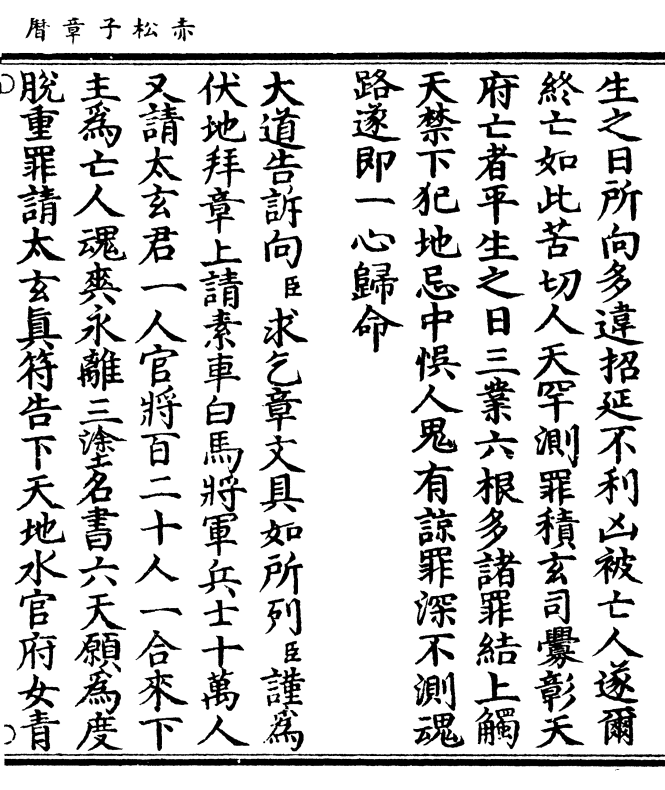 赤松子章曆
生之日所向多違招延不利凶被亡人遂爾
終亡如此苦切人天罕測罪積玄司舋彰天
府亡者平生之日三業六根多諸罪結上觸
天禁下犯地忌中悞人鬼有諒罪深不測魂
路遂即一心歸命
大道告訴向臣求乞章文具如所列臣謹為
伏地拜章上請素車白馬將軍兵士十萬人
又請太玄君一人官將百二十人一合來下
主為亡人魂爽永離三塗名書六天願為度
脫重罪請太玄真符告下天地水官府女青